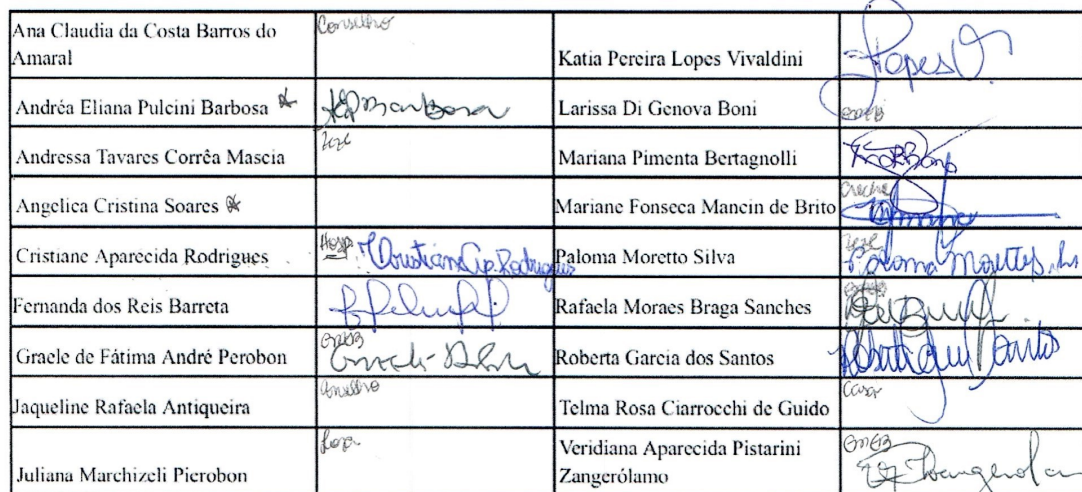 Ana Claudia da Costa Barros do
Amaral
Conselho
Katia Pereira Lopes Vivaldini
Lopes V.
Andréa Eliana Pulcini Barbosa
Barbosa
Larissa Di Genova Boni
Andressa Tavares Corrêa Mascia
Mariana Pimenta Bertagnolli
Angelica Cristina Soares
Mariane Fonseca Mancin de Brito
Creche
Cristiane Aparecida Rodrigues
Cristiane Ap. Rodrigues
Paloma Moretto Silva
Paloma
Fernanda dos Reis Barreta
Rafaela Moraes Braga Sanches
Graele de Fátima André Perobon
Roberta Garcia dos Santos
Jaqueline Rafaela Antiqueira
Conselho
Telma Rosa Ciarrocchi de Guido
Juliana Marchizeli Pierobon
Veridiana Aparecida Pistarini
Zangerólamo